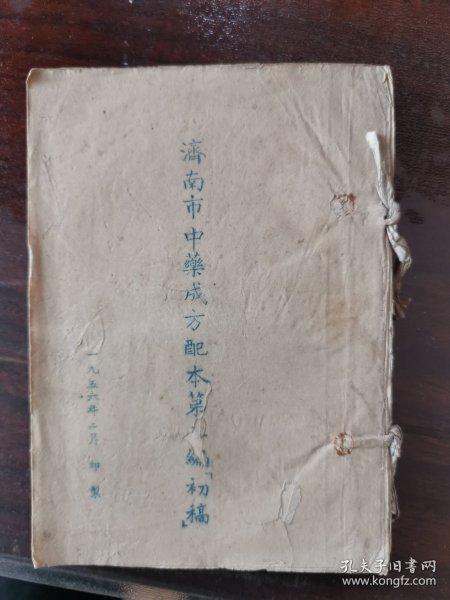 濟南市中藥成方配本第編「初稿」
一九五六年二月 印製
孔夫子旧书网
www.kongfz.com